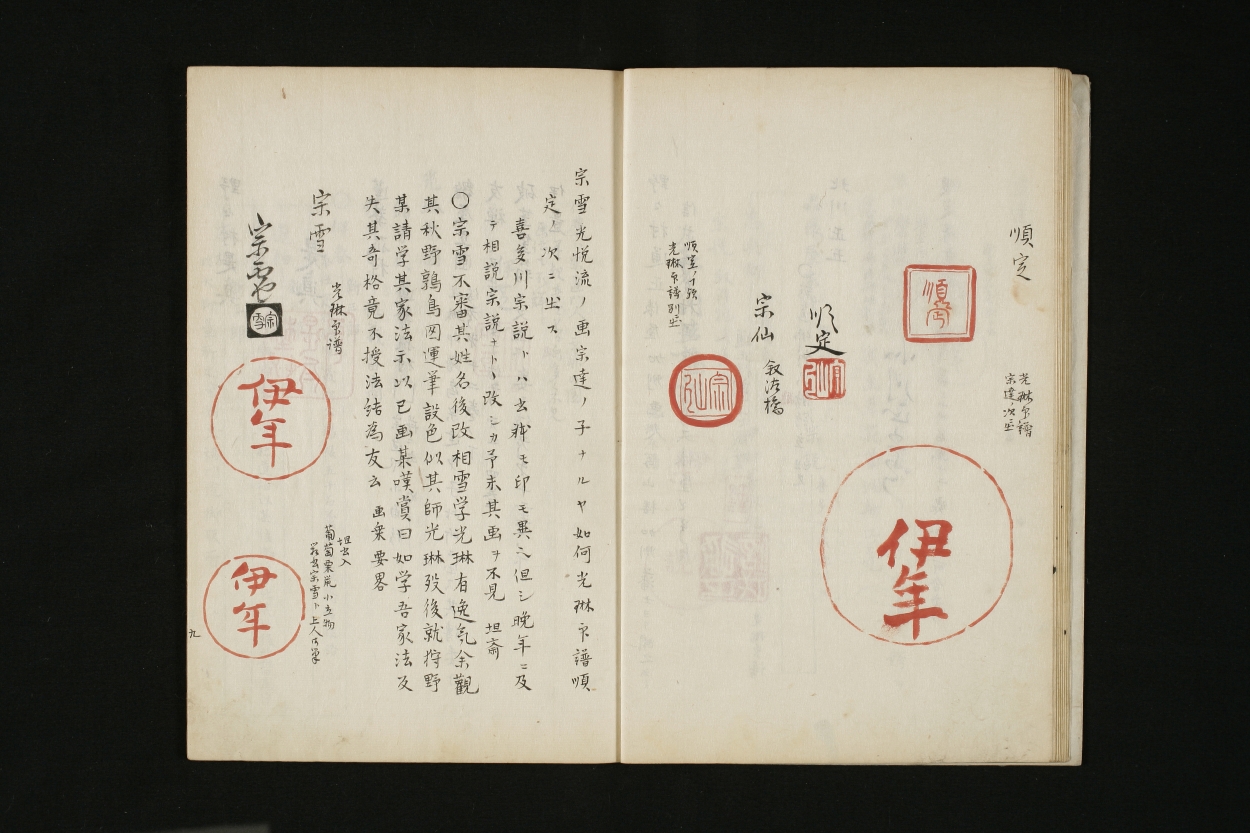 順定
順定
光琳印譜
宗達ノ次ニ出
伊年
順定
宗仙 叙法橋
宗仙
順定ノ下弦
光琳印譜別ニ出
宗雪光悦流ノ画宗達ノ子ナルヤ如何光琳印譜順
定ノ次ニ出ス
喜多川宗説トハ玄印モ異ヘ但シ晩年ニ及
テ相説宗説ナトヽ改シカ予未其画ヲ不見 坦斎
〇宗雪不審其姓名後改相雪学光琳有逸気余観
其秋野鶉鳥図運筆設色似其師光琳歿後就狩野
某請学其家法示以己画某嘆賞曰如学吾家法反
失其奇格竟不授法結為友云 画乗要略
宗雪
光琳印譜
宗雪
宗雪
伊年
坦出入
葡萄栗鼠小立物
伊年
九